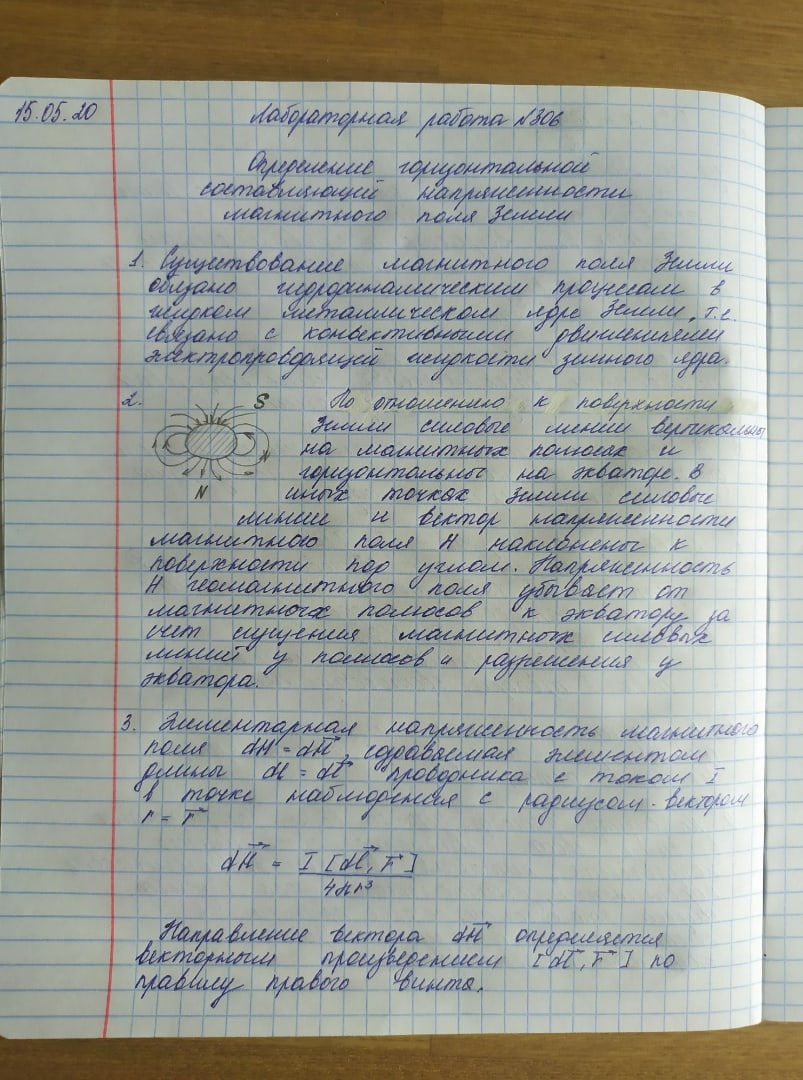 15.05.20
Лабораторная работа №306
Определение горизонтальной
составляющей напряженности
магнитного поля Земли
1. Существование магнитного поля Земли
обязано гидродинамическим процессам в
жидком металлическом ядре Земли, т.е.
связано с конвективными движениями
электропроводящей жидкости земного ядра.
2. По отношению к поверхности
S
Земли силовые линии вертикальны
на магнитных полюсах и
горизонтальны на экваторе. В
N
иных точках Земли силовые
линии и вектор напряженности
магнитного поля H наклонены к
поверхности под углом. Напряженность
H геомагнитного поля убывает от
магнитных полюсов к экватору за
счет сгущения магнитных силовых
линий у полюсов и разрежения у
экватора.
3. Элементарная напряженность магнитного
поля dH = dH⃗, создаваемая элементом
длины dl = dl⃗ проводника с током I
в точке наблюдения с радиусом-вектором
r = r⃗
dH⃗ = I [dl⃗, r⃗] / 4πr³
Направление вектора dH⃗ определяется
векторным произведением [dl⃗, r⃗] по
правилу правого винта.